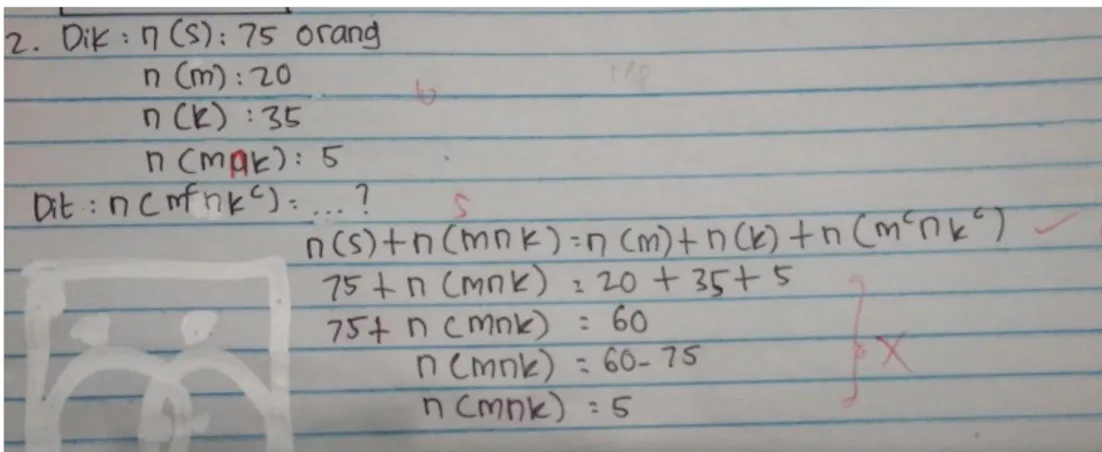 2. Dik : n (S) : 75 orang
n (m) : 20
n (k) : 35
n (m∩k) : 5
Dit : n (mᶜ∩kᶜ) : ... ?
n(S) + n (m∩k) = n (m) + n(k) + n (mᶜ∩kᶜ)
75 + n (m∩k) = 20 + 35 + 5
75 + n (m∩k) = 60
n (m∩k) = 60 - 75
n (m∩k) = 5